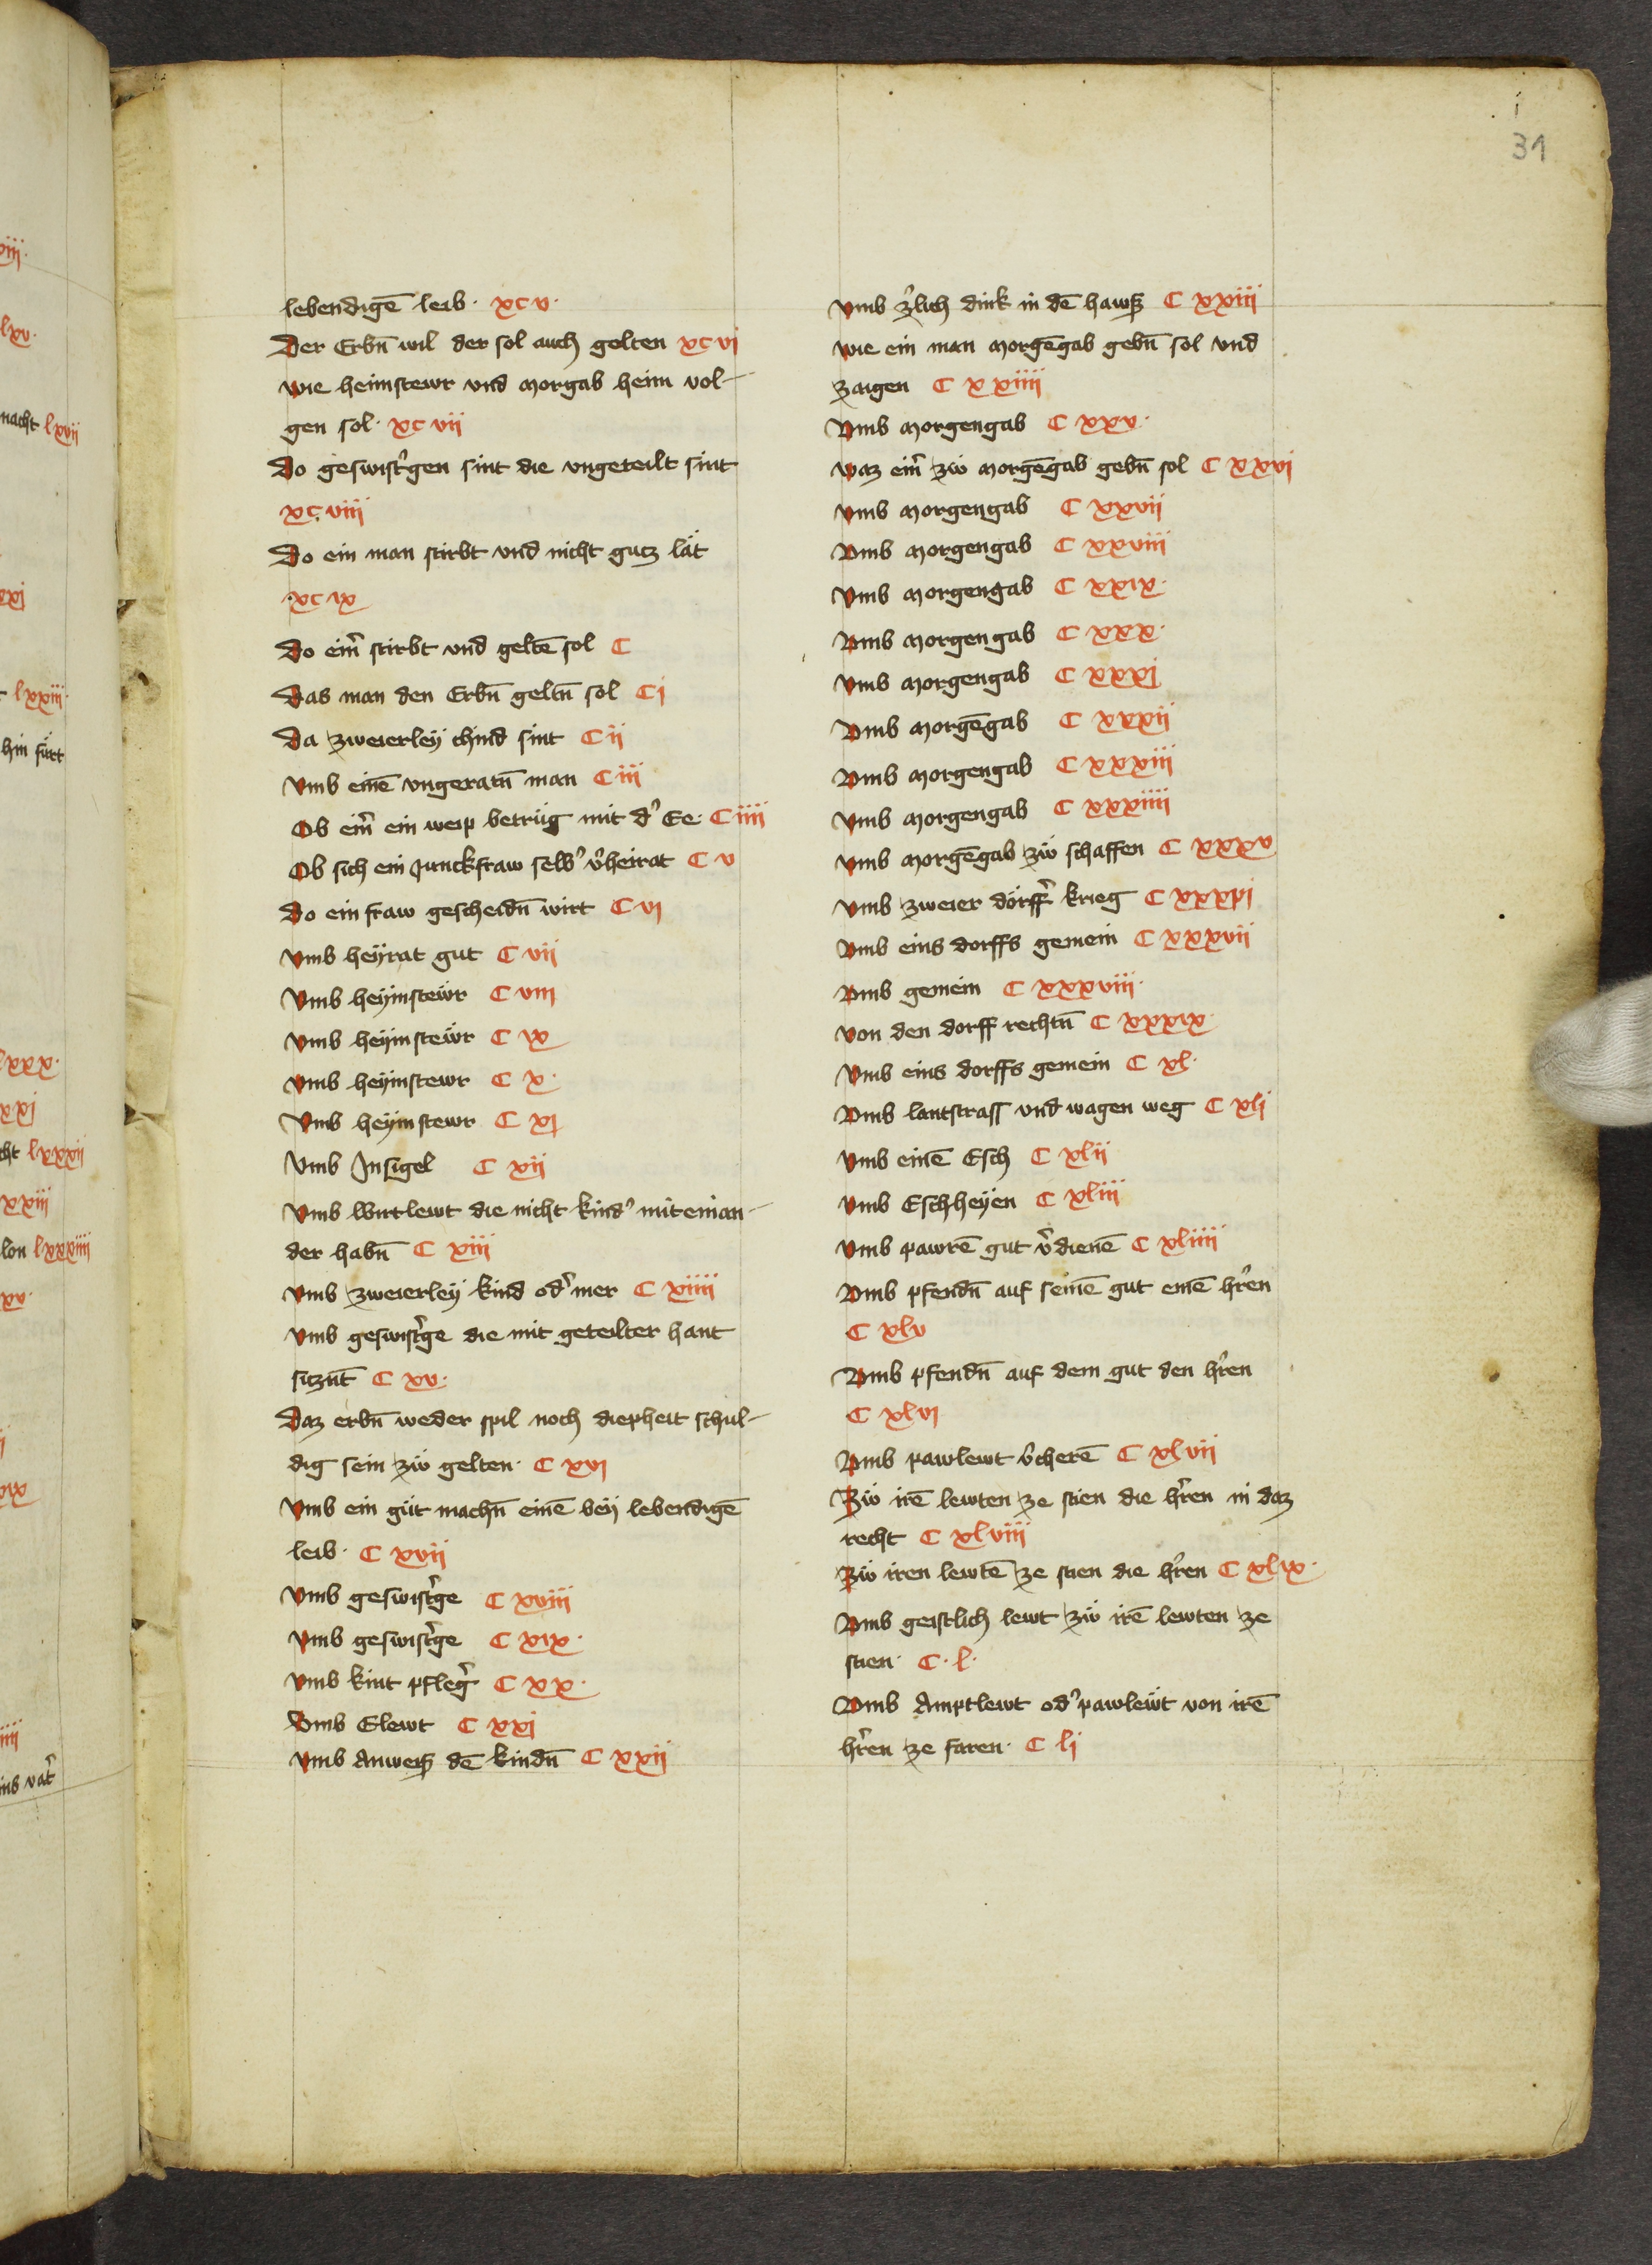 i
31
lebendigē leib · xcv ·
Der Erbn̄ wil der sol auch gelten xcvi
wie heimstewr vnd morgab heim vol-
gen sol · xcvii
Do geswistˀgen sint die vngeteilt sint
xcviii
Do ein man stirbt vnd nicht gutz lät
· xcix
Do eimˀ stirbt vnd geltē sol C
Das man den Erbn̄ geltn̄ sol Ci
Da zweierleÿ chind sint Cii
Vmb einē vngeratn̄ man Ciii
Ob eimˀ ein weip betrüg mit dˀ Ee · Ciiii
Ob sich ein Junckfraw selbˀ vˀheirat C v
Do ein fraw gescheidn̄ wirt C vi
Vmb heÿrat gut C vii
Vmb heÿmstewr C viii
Vmb heÿmstewr C ix
Vmb heÿmstewr C x ·
Vmb heÿmstewr C xi
Vmb Insigel C xii
Vmb wirtlewt die nicht kindˀ miteinan-
der habn̄ C xiii
Vmb zweierleÿ kind odˀ mer C xiiii
Vmb geswistˀge die mit geteilter hant
sitznt̄ C xv ·
Daz erbn̄ weder spil noch diepheit schul-
dig sein zwͦ gelten · C xvi
Vmb ein gut machn̄ einē beÿ lebendigē
leib · C xvii
Vmb geswistˀge C xviii
Vmb geswistˀge C xix ·
Vmb kint pflegˀ C xx ·
Vmb Elewt C xxi
Vmb Anweiß dē kindn̄ C xxii
Vmb zˀlich dink in dē hawß C xxiii
wie ein man morgēgab gebn̄ sol vnd
zaigen C xxiiii
Vmb morgengab C xxv ·
waz eimˀ zwͦ morgēgab gebn̄ sol C xxvi
Vmb morgengab C xxvii
Vmb morgengab C xxviii
Vmb morgengab C xxix ·
Vmb morgengab C xxx ·
Vmb morgengab C xxxi
Vmb morgēgab C xxxii
Vmb morgengab C xxxiii
Vmb morgengab C xxxiiii
Vmb morgēgab zwͦ schaffen C xxxv
Vmb zweier dörffˀ krieg C xxxvi
Vmb eins dorffs gemein C xxxvii
Vmb gemein C xxxviii ·
Von den dorff rechtn̄ C xxxix ·
Vmb eins dorffs gemein C xl ·
Vmb lantstrass vnd wagen weg C xli
Vmb einē Esch C xlii
Vmb Eschheÿen C xliii
Vmb pawrē gut vˀdienē C xliiii
Vmb pfendn̄ auf seinē gut einē hˀren
C xlv
Vmb pfendn̄ auf dem gut den hˀren
C xlvi
Vmb pawlewt vˀcherē C xlvii
Zwͦ irē lewten ze stien die hˀren in daz
recht C xlviii
Zwͦ iren lewtē ze stien die hˀren C xlix ·
Vmb geistlich lewt zwͦ irē lewten ze
stien · C · l ·
Vmb Amptlewt odˀ pawlewt von irē
hˀren ze faren · C li